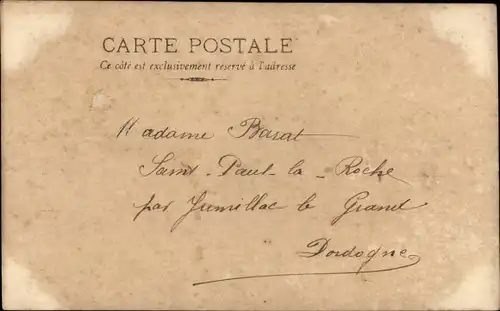 CARTE POSTALE
Ce côté est exclusivement réservé à l'adresse
Madame Barat
Saint-Paul-la-Roche
par Jumillac le Grand
Dordogne